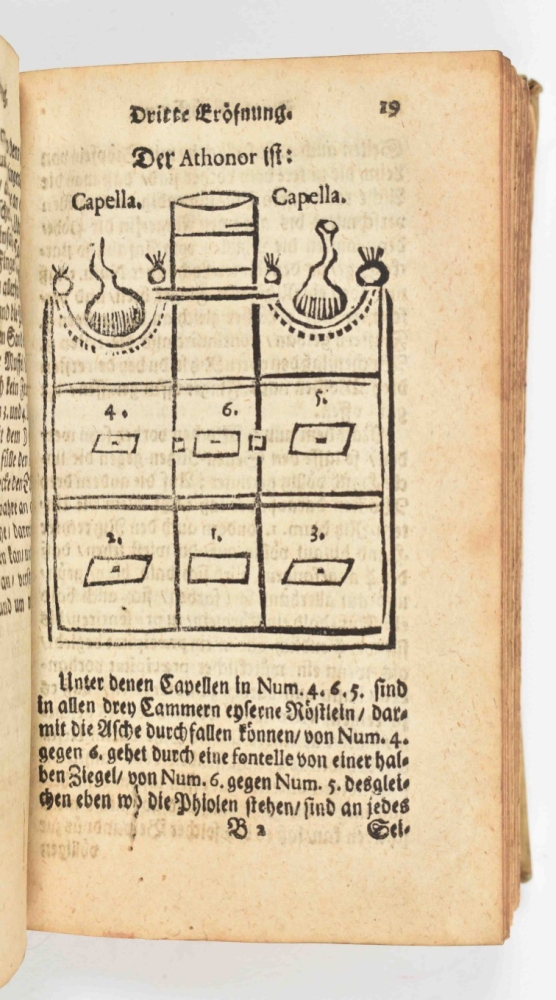 Dritte Eröfnung. 19
Der Athonor ist:
Capella. Capella.
4. 6. 5.
2. 1. 3.
Unter denen Capellen in Num. 4. 6. 5. sind
in allen drey Cammern eyserne Röstlein/ dar-
mit die Asche durchfallen können/ von Num. 4.
gegen 6. gehet durch eine fontelle von einer hal-
ben Ziegel/ von Num. 6. gegen Num. 5. desglei-
chen eben wo die Phiolen stehen/ sind an jedes
B 2 Sei-